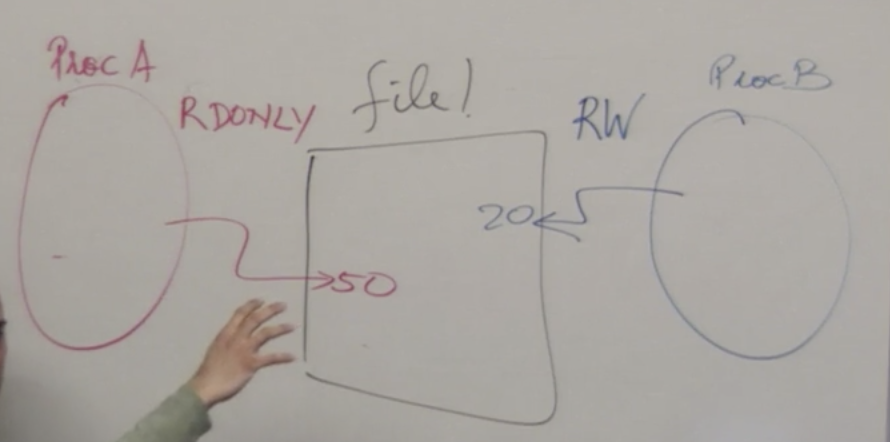 Proc A
RDONLY
file1
RW
Proc B
20
50